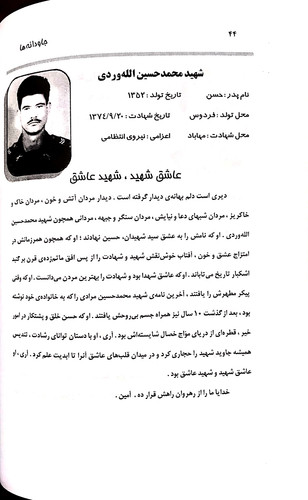 ۴۴
جاودانه‌ها
شهید محمدحسین الله‌وردی
نام پدر : حسن
تاریخ تولد : ۱۳۵۲
محل تولد : فردوس
تاریخ شهادت : ۱۳۷۴/۹/۲۰
محل شهادت : مهاباد
اعزامی : نیروی انتظامی
عاشق شهید ، شهید عاشق
دیری است دلم بهانه‌ی دیدار گرفته است . دیدار مردان آتش و خون ، مردان خاک و
خاکریز ، مردان شبهای دعا و نیایش ، مردان سنگر و جبهه ، مردانی همچون شهید محمدحسین
الله‌وردی . او که نامش را به عشق سید شهیدان، حسین نهادند ؛ او که همچون همرزمانش در
امتزاج عشق و خون ، آفتاب خوش‌نقش شهید و شهادت را از پس افق ماتم‌زده‌ی قرن بر گنبد
اشکبار تاریخ می‌تاباند . او که عاشق شهدا بود و شهادت را بهترین مردن می‌دانست . او که وقتی
پیکر مطهرش را یافتند ، آخرین نامه‌ی شهید محمدحسین مرادی را که به خانواده‌ی خود نوشته
بود ، بعد از گذشت ۱۰ سال نیز همراه جسم بی‌روحش یافتند . او که حسن خلق و پشتکار در امور
خیر ، قطره‌ای از دریای موّاج خصال شایسته‌اش بود . آری ، او با دستان توانای رشادت ، تندیس
همیشه جاوید شهید را حجاری کرد و در میدان قلب‌های عاشق آنرا تا ابدیت علم کرد . آری ، او
عاشق شهید و شهید عاشق بود .
خدایا ما را از رهروان راهش قرار ده . آمین .